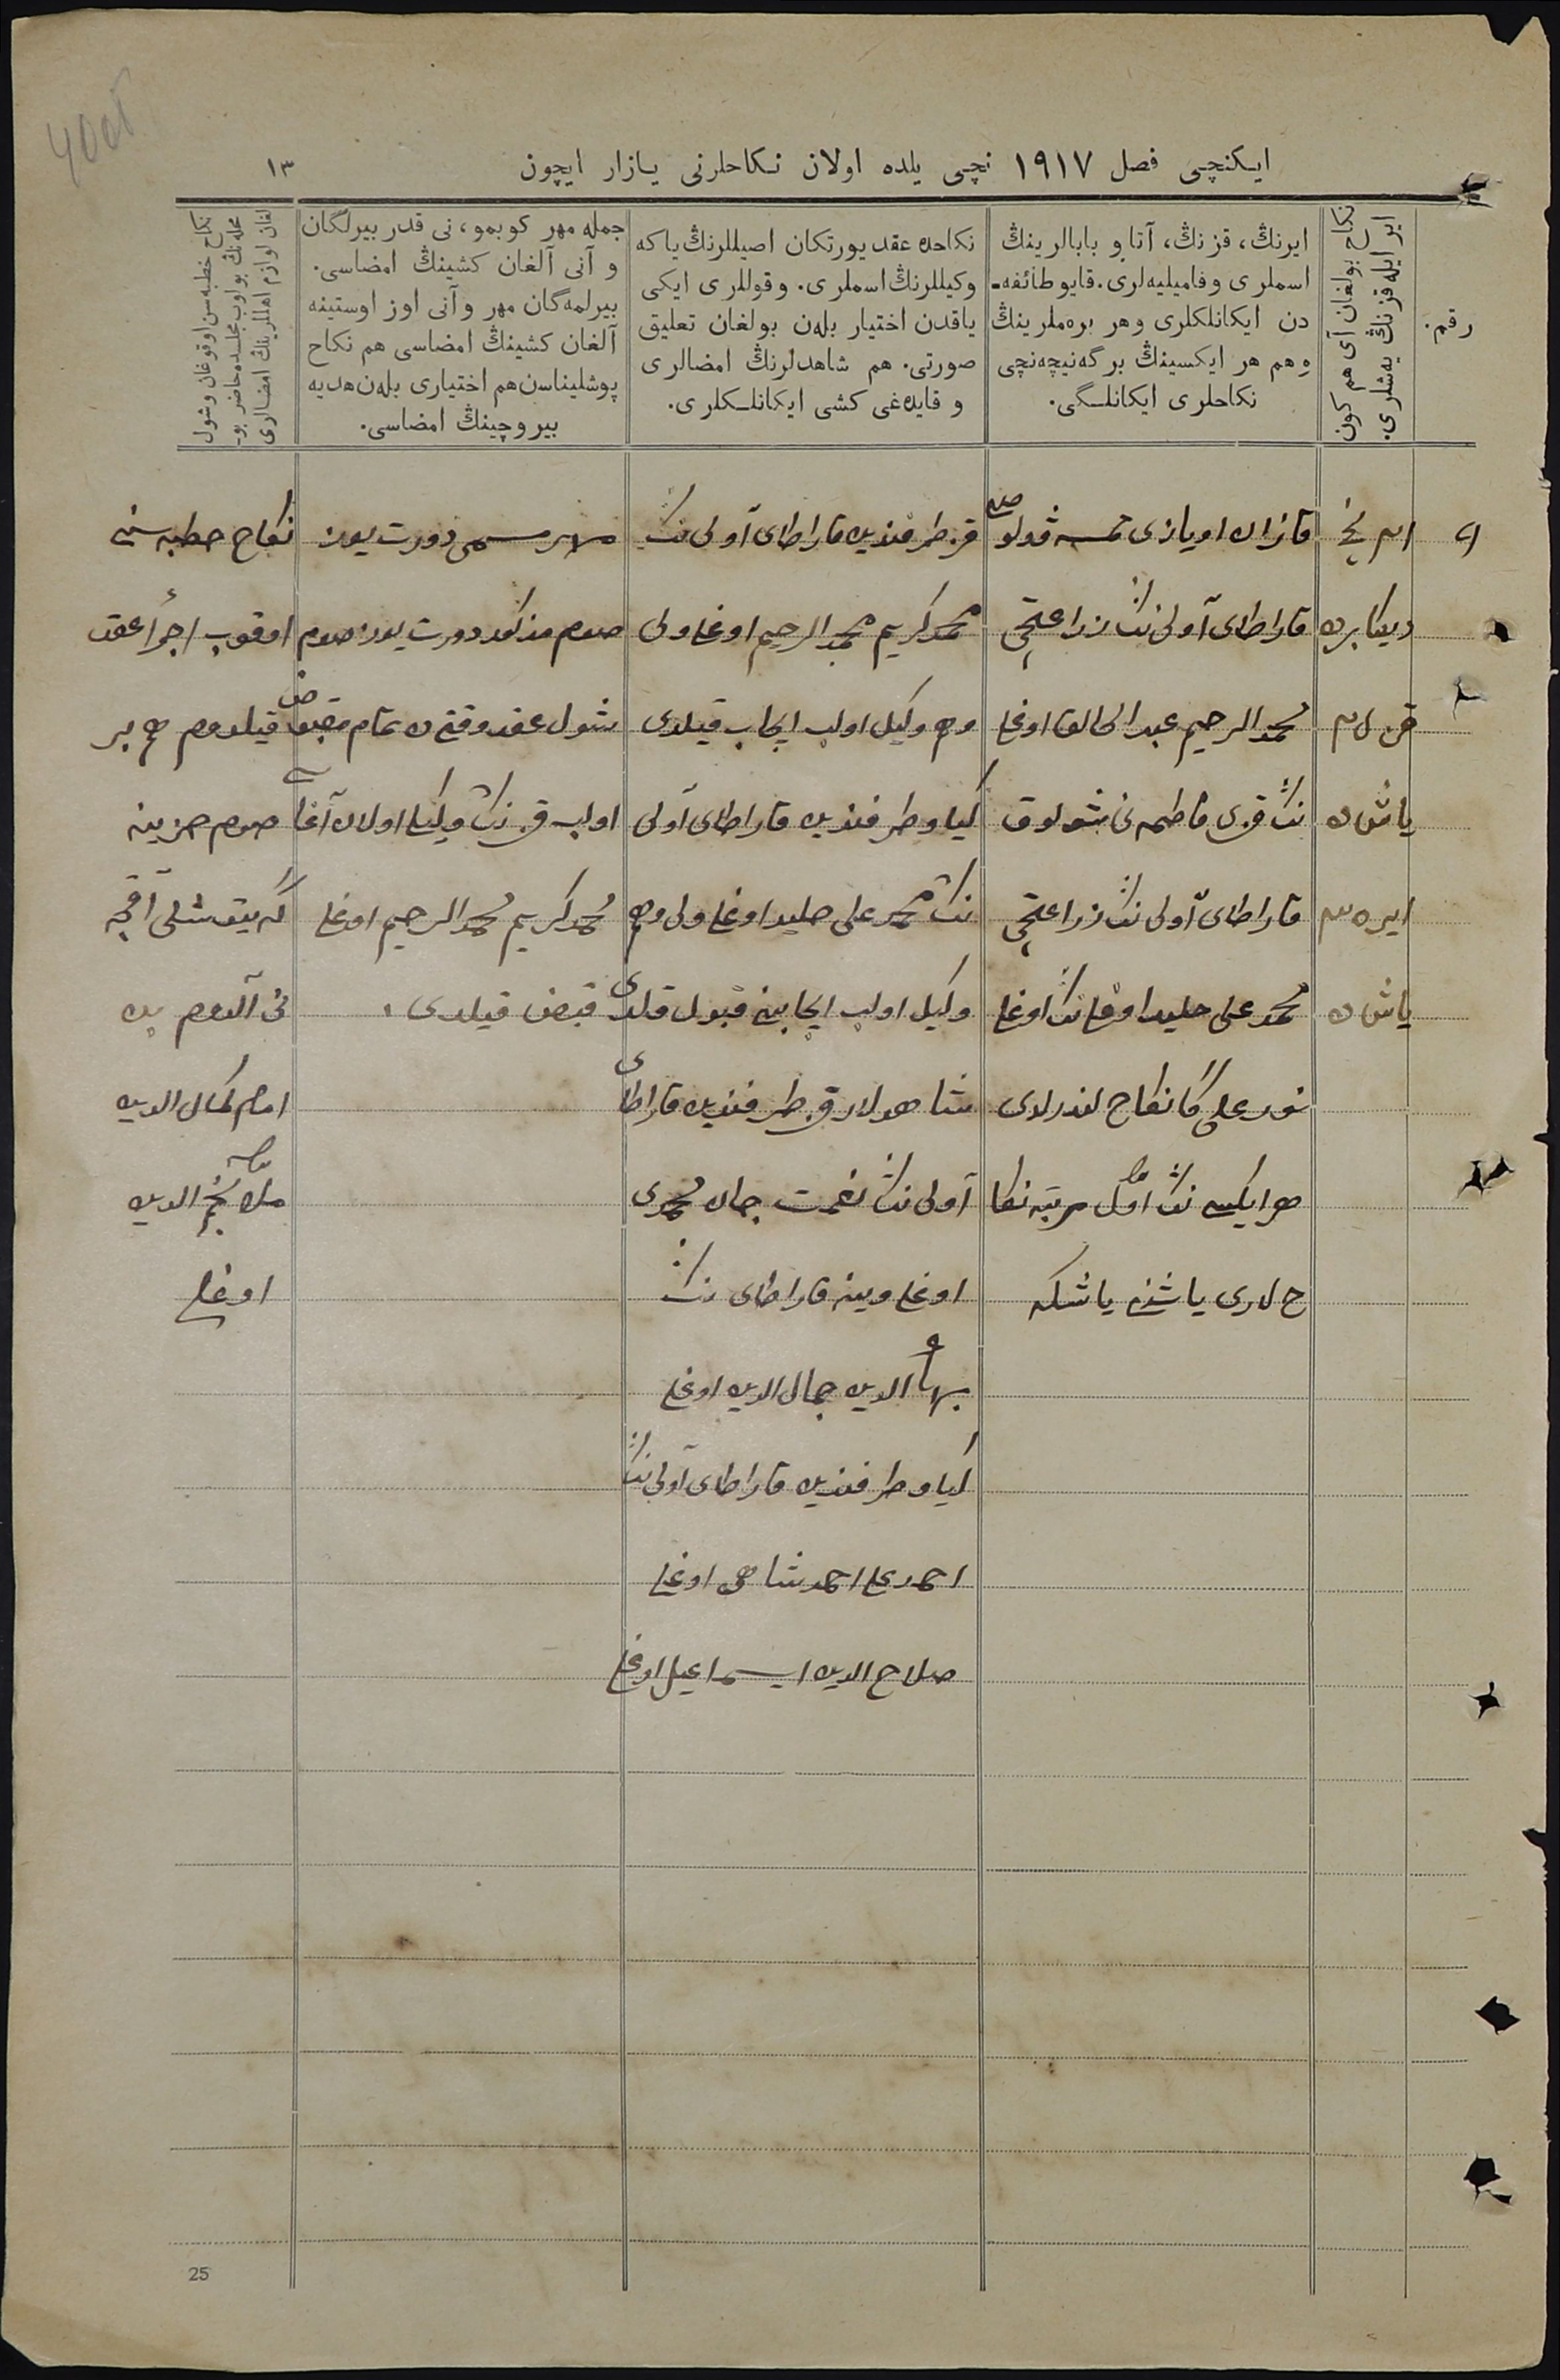 400б
ایکنچی فصل ۱۹۱۷ نچی یلده اولان نکاحلرنی یازار ایچون
۱۳
رقم.
نکاح بولغان آی هم کون
ایر ایله قزنڭ یه‌شلری.
ایرنڭ، قزنڭ، آتا و بابالرینڭ
اسملری و فامیلیه‌لری. قایو طائفه‌ـ
دن ایکانلکلری وهر بره‌ملرینڭ
ه‌م هر ایکسینڭ برگه‌نیچه‌نچی
نکاحلری ایکانلـگی.
نکاحده عقد یورتکان اصیللرنڭ یاکه
وکیللرنڭ اسملری. وقوللری ایکی
یاقدن اختیار بله‌ن بولغان تعلیق
صورتی. هم شاهدلرنڭ امضالری
و قایده‌غی کشی ایکانلـکلری.
جمله مهر کوبمو، نی قدر بیرلگان
و آنی آلغان کشینڭ امضاسی.
بیرلمه‌گان مهر وآنی اوز اوستینه
آلغان کشینڭ امضاسی هم نکاح
پوشلیناسن هم اختیاری بله‌ن هدیه
بیروچینڭ امضاسی.
نکاح خطبه‌سن اوقوغان وشول
محله‌نڭ بو اوب مجلسده حاضر بوـ
لغان لوازم اهللرینڭ امضالری
قازان اویازی
قاراطای آولی ننڭ زراعتچی
محمد الرحیم عبد الخالق اوغلی
ننڭ قزی فاطمه نی شولوق
قاراطای آولی ننڭ زراعتچی
محمد علی
نور علی گا نکاح لندرلدی
هر ایکیسی ننڭ اول مرتبه نکا
ح لاری یاشینی یاشکه
دیکابرده
قز
یاشنده
ایر
یاشنده
قز طرفندین قاراطای آولی ننڭ
محمد کریم محمد الرحیم اوغلی ولی
وهم وکیل اولب ایجاب قیلدی
کیاو طرفندین قاراطای آولی
ننڭ محمد علی اوغلی ولی وهم
وکیل اولب ایجابنی قبول قلدی
شاهدلار قز طرفندین قاراطای
آولی ننڭ نعمت جان محمدی
اوغلی وینه قاراطای ننڭ
بهاءالدین جمال الدین اوغلی
کیاو طرفندین قاراطای آولی ننڭ
احمد علی احمد شاهی اوغلی
صلاح الدین اسماعیل اوغلی
مهر مسمی دورت یوز
صوم مذکور دورت یوز صوم
شول عقد وقتی ده تمام مقبوض
اولب قز ننڭ وکیلی اولان آغاسی
محمد کریم محمد الرحیم اوغلی
قبض قیلدی.
نکاح خطبه سنی
اوقوب اجراء عقد
قیلدوم هم بر
صوم خزینه
گه آقچه
نی آلدوم
امام کمال الدین
ملا نجم الدین
اوغلی
25